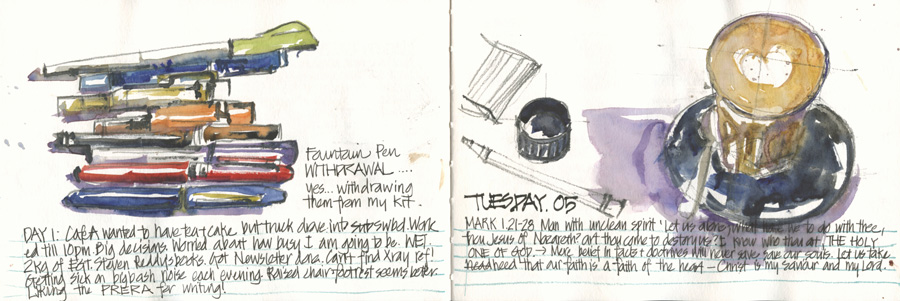 Fountain Pen
WITHDRAWAL ....
yes... withdrawing
them from my kit.
DAY 1: Caf. A wanted to have tea+cake but truck drove into subswbd. Work
ed till 10pm. Big decisions. Worried about how busy I am going to be. WET.
2kg of Fert. Steven Reddy books. Got Newsletter data. Can't find Xray ref!
Getting sick on big bash noise each evening. Raised chair+footrest seems better.
Liking the PRERA for writing!
TUESDAY. 05
MARK 1.21-28 Man with unclean spirit 'Let us alone, what have we to do with thee,
thou Jesus of Nazareth? art thou come to destroy us? I know who thou art, THE HOLY
ONE OF GOD. → Mere belief in facts + doctrines will never save our souls. Let us take
heed that our faith is a faith of the heart – Christ is my Saviour and my Lord.